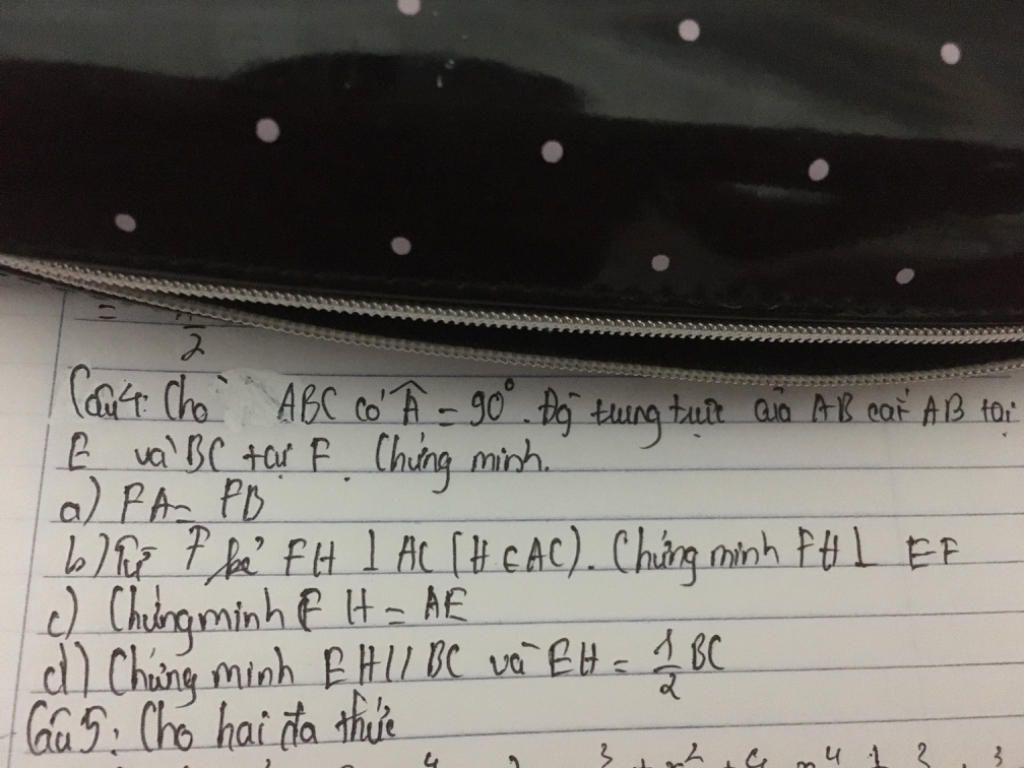 = π/2
Câu 4: Cho ABC có Â = 90°. Độ trung trực của AB cắt AB tại
E và BC tại F. Chứng minh.
a) FA = FB
b) Từ F kẻ FH ⊥ AC (H ∈ AC). Chứng minh FH ⊥ EF
c) Chứng minh F H = AE
d) Chứng minh EH // BC và EH = 1/2 BC
Câu 5: Cho hai đa thức